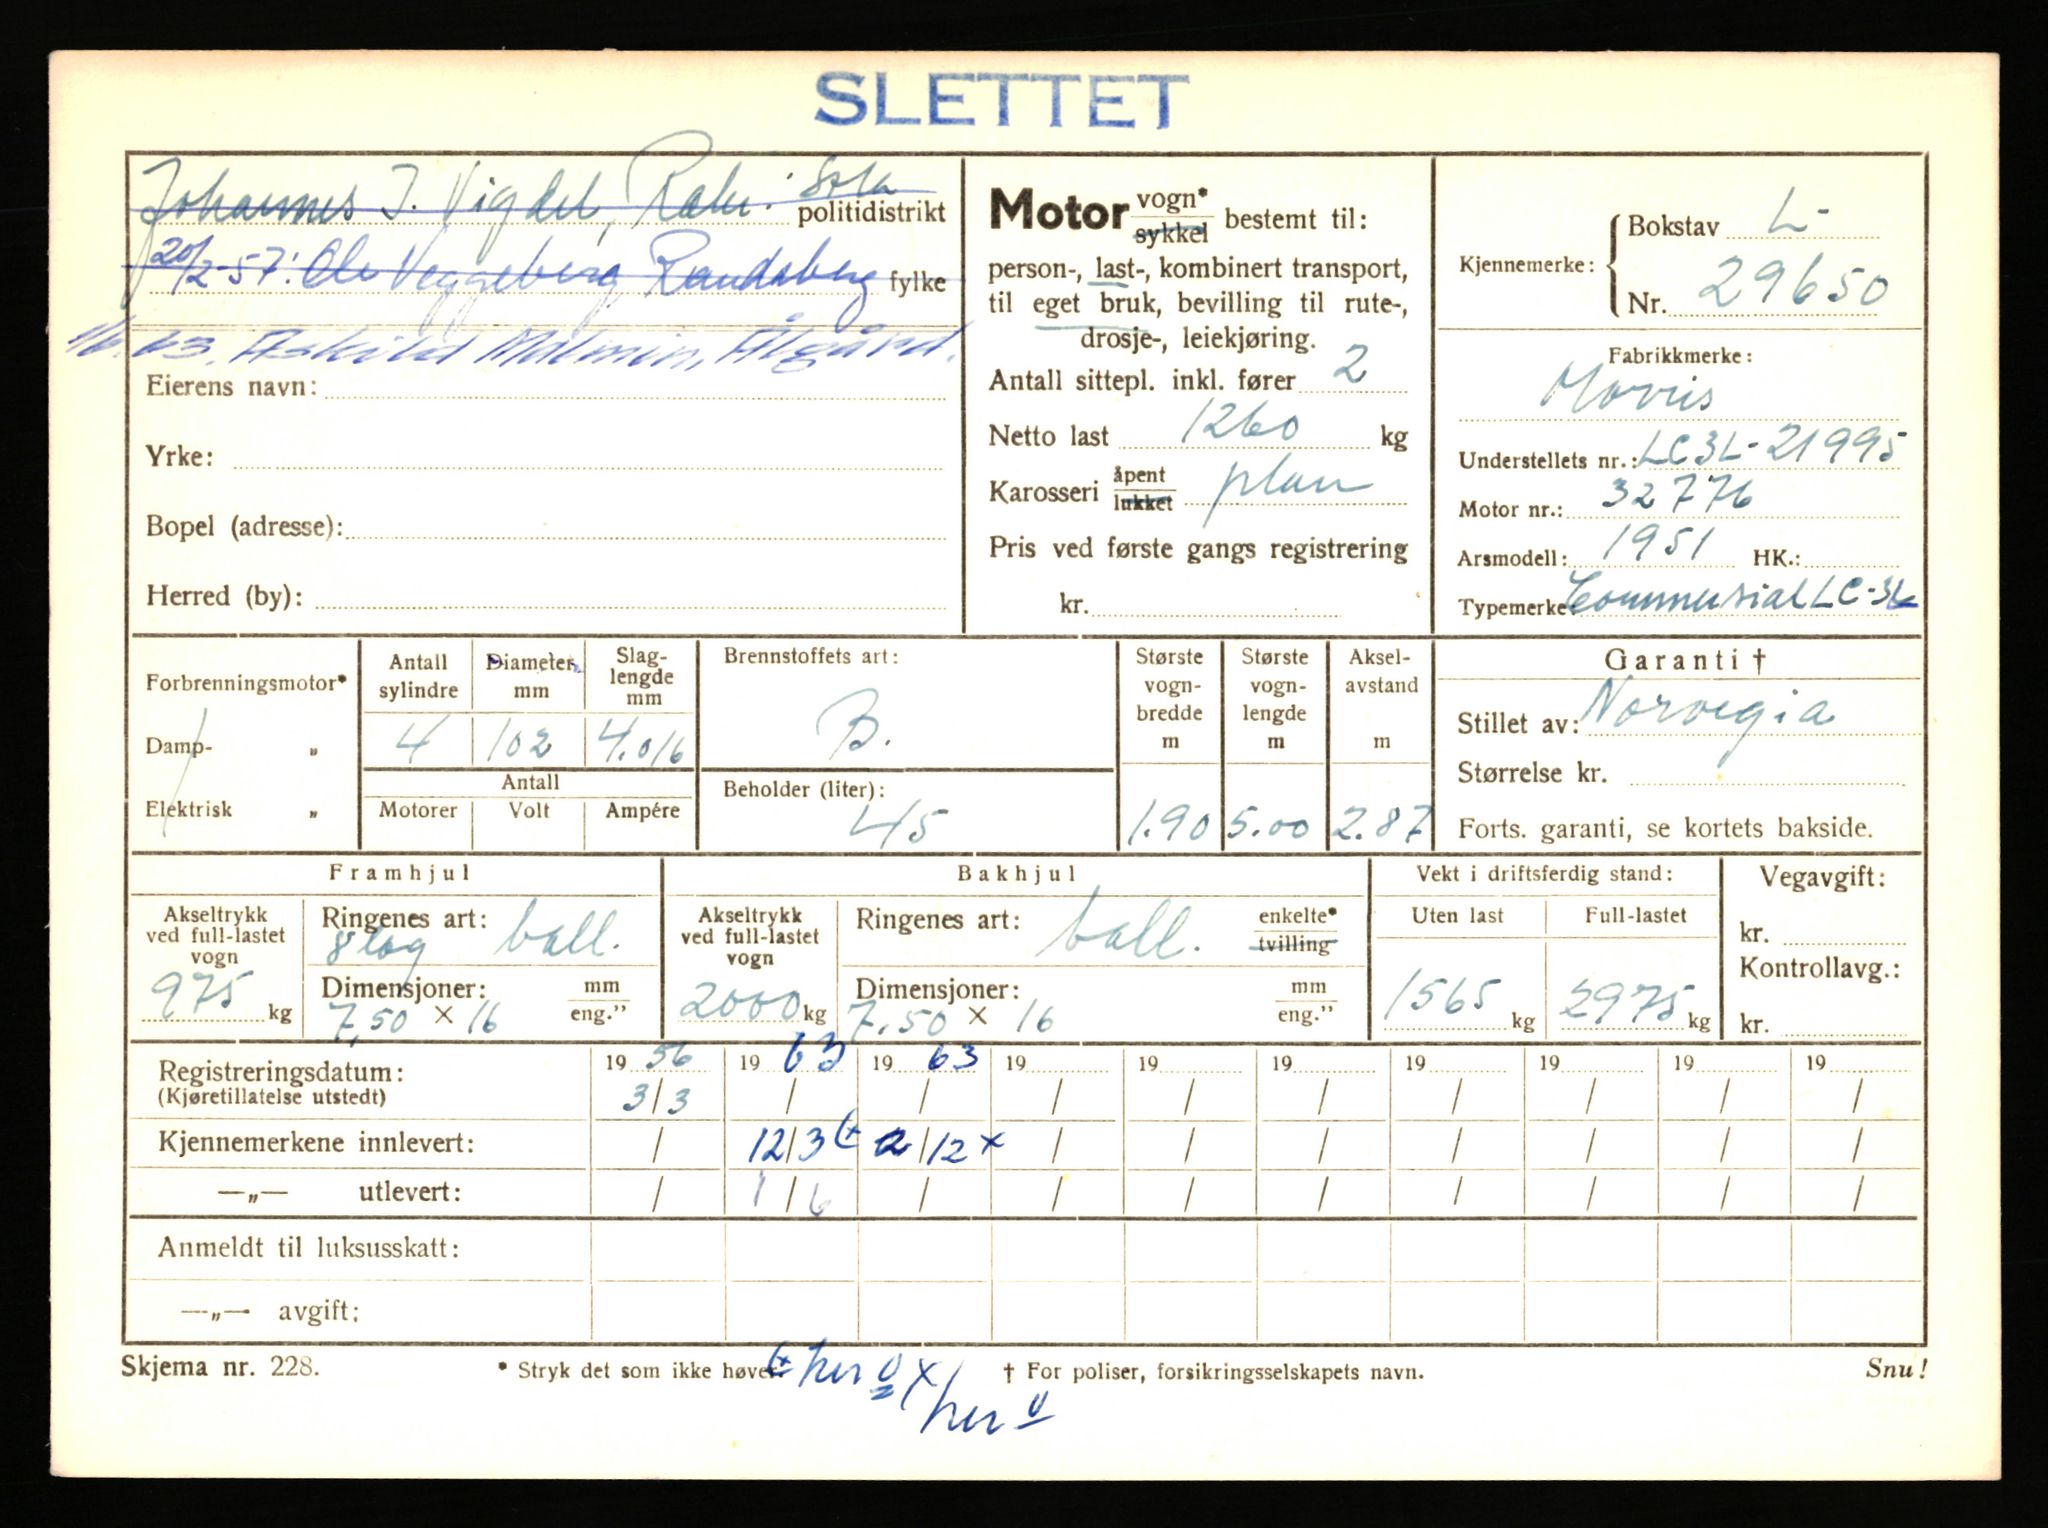 SLETTET
Johannes J. Vigdel, Sola
politidistrikt
20/2-57: Ole Veggeberg Randaberg fylke
63. Askild Malmin, Ålgård.
Eierens navn:
Yrke:
Bopel (adresse):
Herred (by):
Motor vogn* sykkel bestemt til:
person-, last-, kombinert transport,
til eget bruk, bevilling til rute-,
drosje-, leiekjøring.
Antall sittepl. inkl. fører 2
Netto last 1260 kg
Karosseri åpent lukket plan
Pris ved første gangs registrering
kr.
Kjennemerke: Bokstav L-
Nr. 29650
Fabrikkmerke:
Morris
Understellets nr.: LC3L-21995
Motor nr.: 32776
Arsmodell: 1951 HK.:
Typemerke: Commersial LC-3L
Forbrenningsmotor*
Damp- „
Elektrisk „
Antall sylindre
Diameter mm
Slag-lengde mm
4 102 4.016
Antall
Motorer Volt Ampére
Brennstoffets art:
B.
Beholder (liter):
45
Største vogn-bredde m
1.90
Største vogn-lengde m
5.00
Aksel-avstand m
2.87
Garanti †
Stillet av: Norvegia
Størrelse kr.
Forts. garanti, se kortets bakside.
Framhjul
Akseltrykk ved full-lastet vogn
975 kg
Ringenes art: 8 lag ball.
Dimensjoner: mm eng."
7,50 × 16
Bakhjul
Akseltrykk ved full-lastet vogn
2000 kg
Ringenes art: ball. enkelte* tvilling
Dimensjoner: mm eng."
7.50 × 16
Vekt i driftsferdig stand:
Uten last Full-lastet
1565 kg 2975 kg
Vegavgift:
kr.
Kontrollavg.:
kr.
Registreringsdatum: 19 56 19 63 19 63 19 19 19 19 19 19 19
(Kjøretillatelse utstedt) 3/3 / / / / / / / / /
Kjennemerkene innlevert: / 12/3 (+ 2/12 x / / / / / / /
—„— utlevert: / 1/6 / / / / / / / /
Anmeldt til luksusskatt:
—„— avgift:
Skjema nr. 228.
* Stryk det som ikke høver.
† For poliser, forsikringsselskapets navn.
Snu!